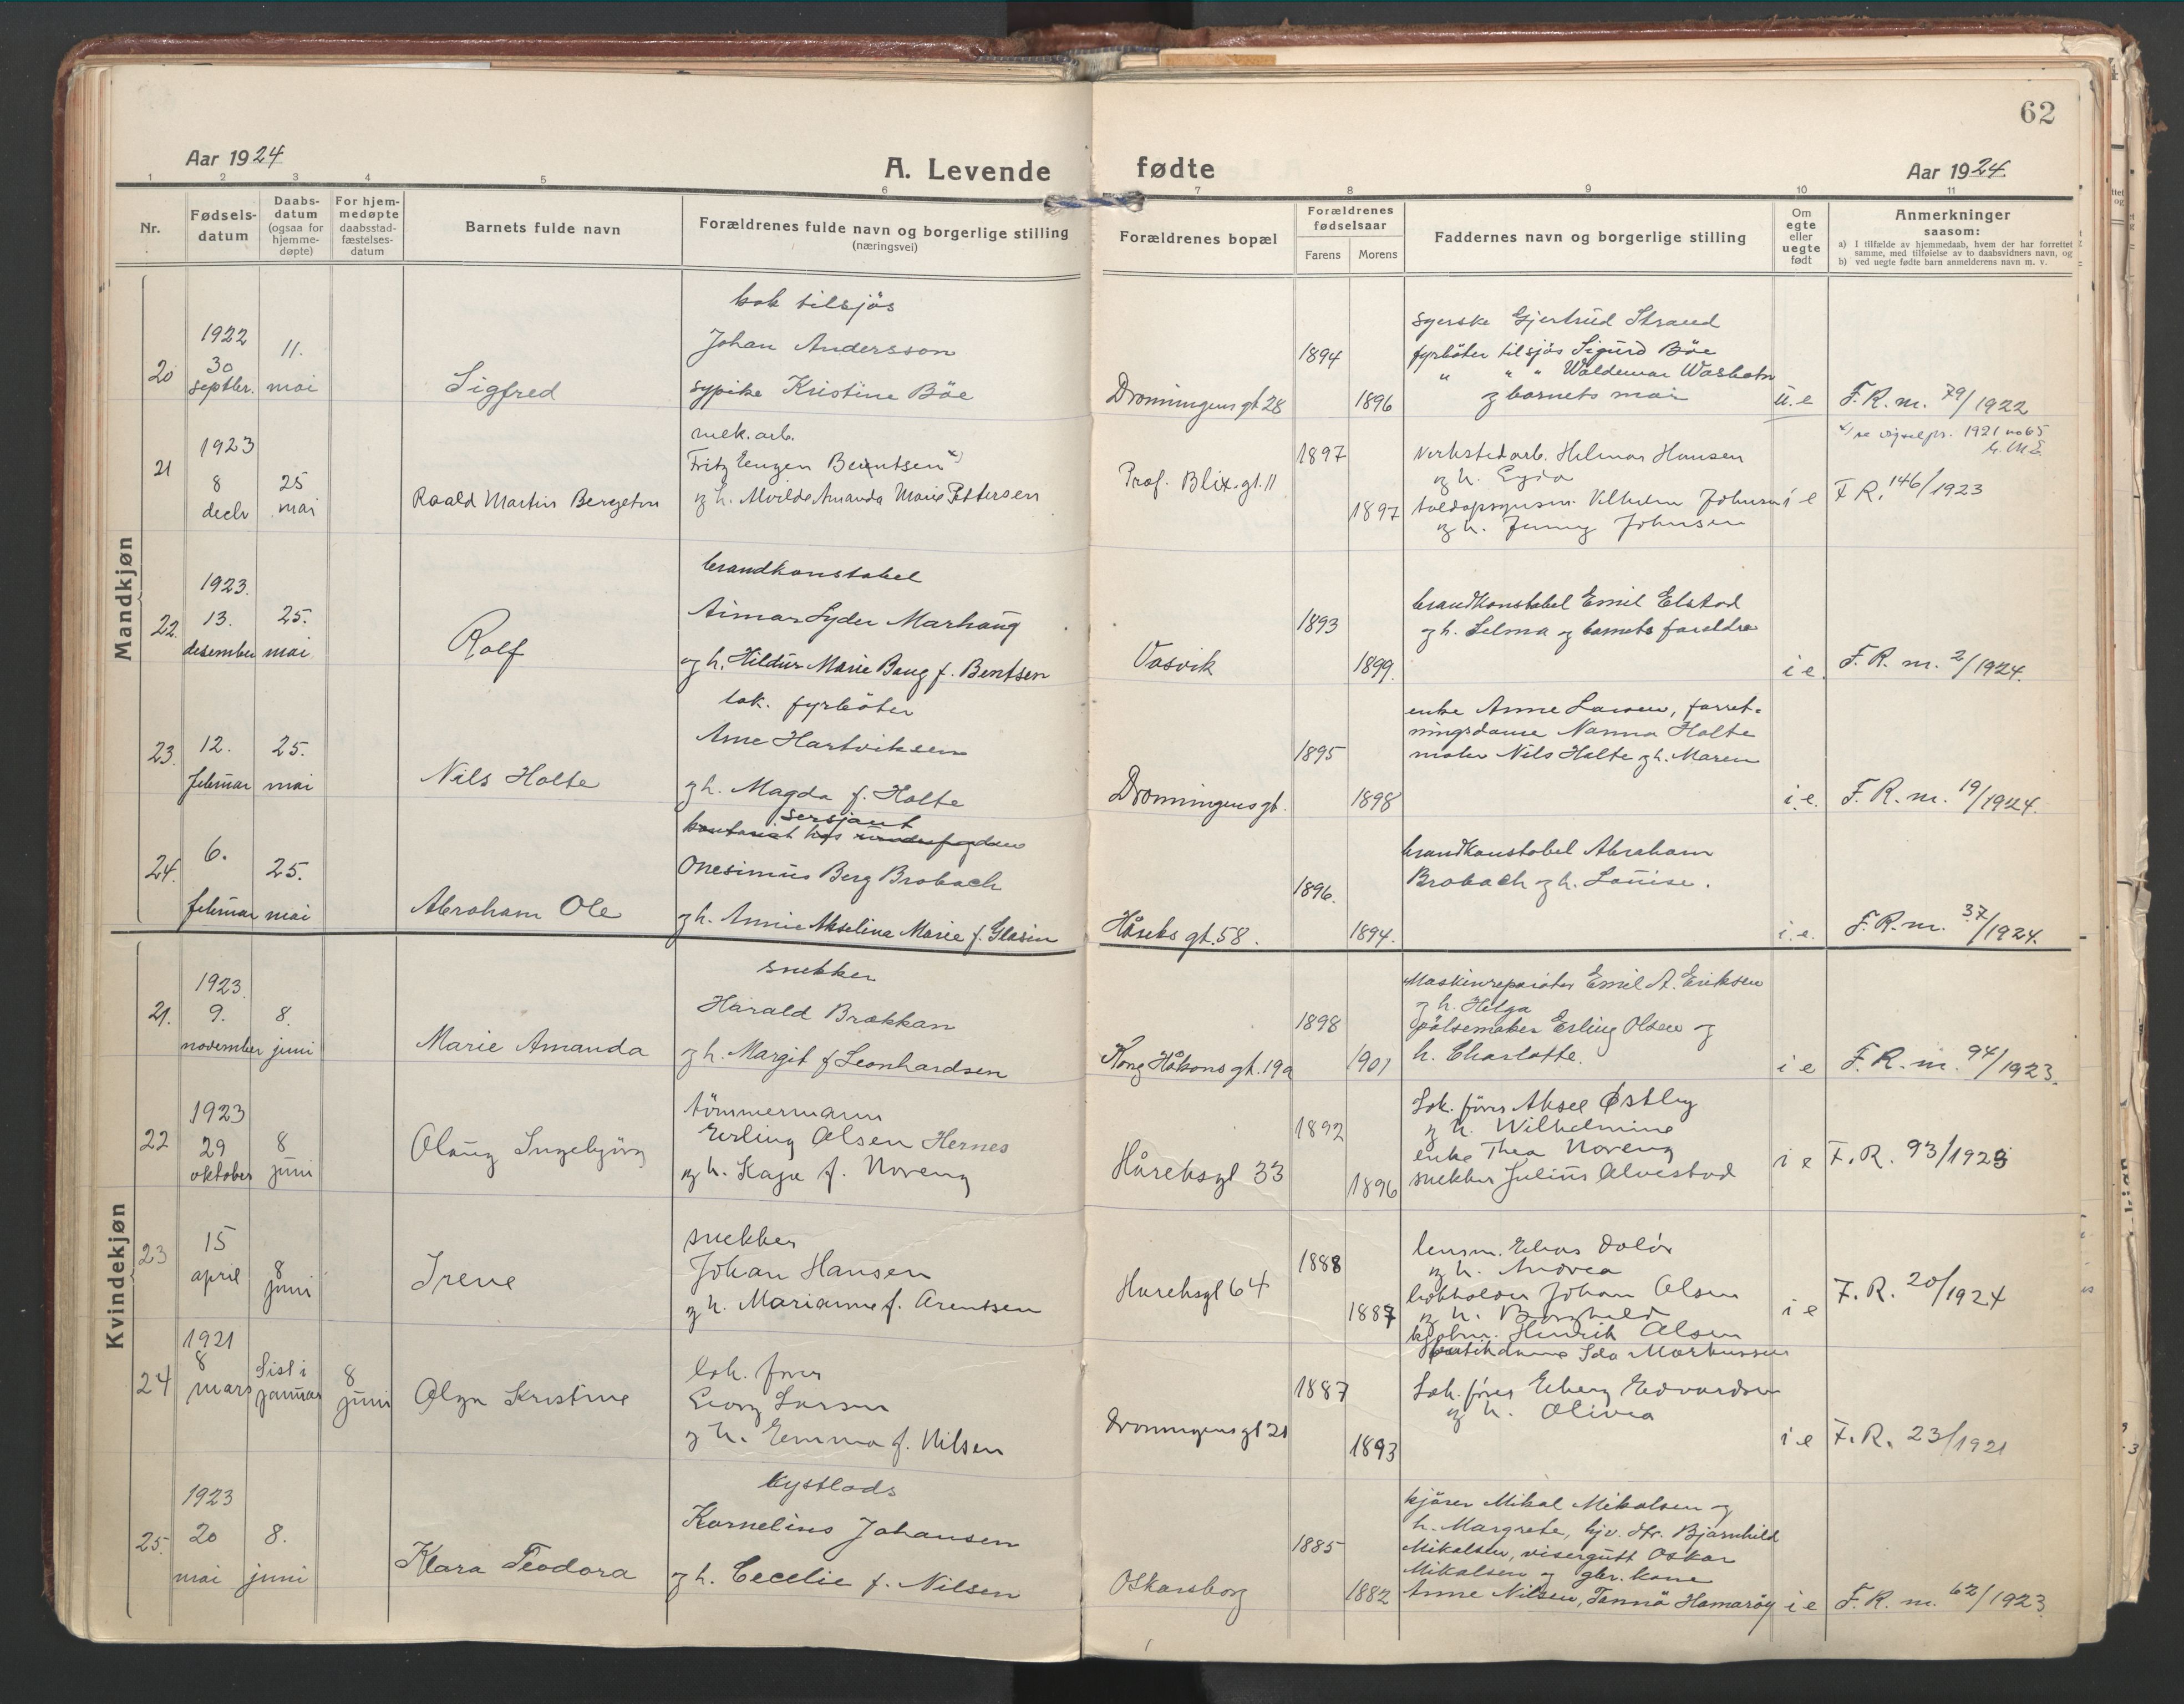 62
Aar 1924
A. Levende fødte
Aar 1924.
1 2 3 4 5 6 7 8 9 10 11
Nr.
Fødsels-
datum
Daabs-
datum
(ogsaa for
hjemme-
døpte)
For hjem-
medøpte
daabsstad-
fæstelses-
datum
Barnets fulde navn
Forældrenes fulde navn og borgerlige stilling
(næringsvei)
Forældrenes bopæl
Forældrenes
fødselsaar
Farens
Morens
Faddernes navn og borgerlige stilling
Om
egte
eller
uegte
født
Anmerkninger
saasom:
a) I tilfælde av hjemmedaab, hvem der har forrettet
samme, med tilføielse av to daabsvidners navn, og
b) ved uegte fødte barn anmelderens navn m. v.
Mandkjøn
20
1922
30
septbr.
11.
mai
Sigfred
kok tilsjøs
Johan Andersson
sypike Kristine Böe
Dronningens gt 28
1894
1896
syerske Gjertrud Strand
fyrböter tilsjøs Sigurd Böe
" " " Waldemar
og barnets mor
u. e
F. R. m. 79/1922
21
1923
8
decbr
25
mai
Roald Martin Bergeton
mek. arb.
Fritz Eugen Berntsen x)
og h. Alvilde Amanda Marie Pettersen
Prof. Blix. gt. 11
1897
1897
Verkstedarb. Helmar Hansen
og h.
toldopsynsm. Vilhelm Johnsen
og h. Jenny Johnsen
i e
x) se vigselpr. 1921 no 65
F R. 146/1923
22.
1923.
13.
desember
25.
mai
Rolf
brandkonstabel
Aimar Lyder Marhaug
og h. Hildur Marie Baug f. Bentsen
Vasvik
1893
1899.
brandkonstabel Emil Elstad
og h. Selma og barnets foreldre
i e.
F. R. m. 2/1924.
23.
12.
februar
25.
mai
Nils Holte
lok. fyrböter
Arne Hartviksen
og h. Magda f. Holte
Dronningens gt.
1895
1898
enke Anne Larsen, forret-
ningsdame Nanna Holte
maler Nils Holte og h. Maren
i. e.
F. R. m. 19/1924.
24.
6.
februar
25.
mai
Abraham Ole
sersjant
kontorist hos
Onesimus Berg Brobach
og h. Annie Akselina Marie f. Glasin
Håreks gt. 58.
1896.
1894.
brandkonstabel Abraham
Brobach og h. Louise.
i. e.
F. R. m. 37/1924.
Kvindekjøn
21.
1923
9.
november
8.
juni
Marie Amanda
snekker
Harald Brækkan
og h. Margit f Leonhardsen
Kong Håkons gt. 19a
1898
1901
Maskinreparatør Emil A. Eriksen
og h. Helga
pölsemaker Erling Olsen og
h. Charlotte.
i e
F. R. m. 94/1923.
22
1923
29
oktober
8
juni
Olaug Ingebjörg
tömmermann
Erling Olsen Hernes
og h. Kaja f. Noreng
Håreksgt 33
1892
1896
Lok. förer Aksel Østby
og h. Wilhelmine
enke Thea Noreng
snekker Julius Alvestad
i e
F. R. 93/1923
23
15
april
8
juni
Irene
snekker
Johan Hansen
og h. Marianne f. Arentsen
Hareksgt 64
1888
1887
lensm.
og h. Andrea
Johan Olsen
og h. Borghild
Henrik Olsen
butikdame Ida Markussen
i e
F. R. 20/1924
24
1921
8
mars
Sist i
januar
8
juni
Olga Kristine
lok. förer
Georg Larsen
og h. Emma f. Nilsen
Dronningensgt 21
1887
1893
Lok. förer Edvardsen
og h. Olivia
i e
F. R. 23/1921
25.
1923
20
mai
8.
juni
Klara Teodora
kystlods
Kornelius Johansen
og h. Cecelie f. Nilsen
Oskarsborg
1885
1882
kjører Mikal Mikalsen og
h. Margrete, hjv. dtr. Bjarnhild
Mikalsen, visergutt Oskar
Mikalsen og gbr. kone
Anne Nilsen, Tannö Hamaröy
i e
F. R. m. 62/1923.